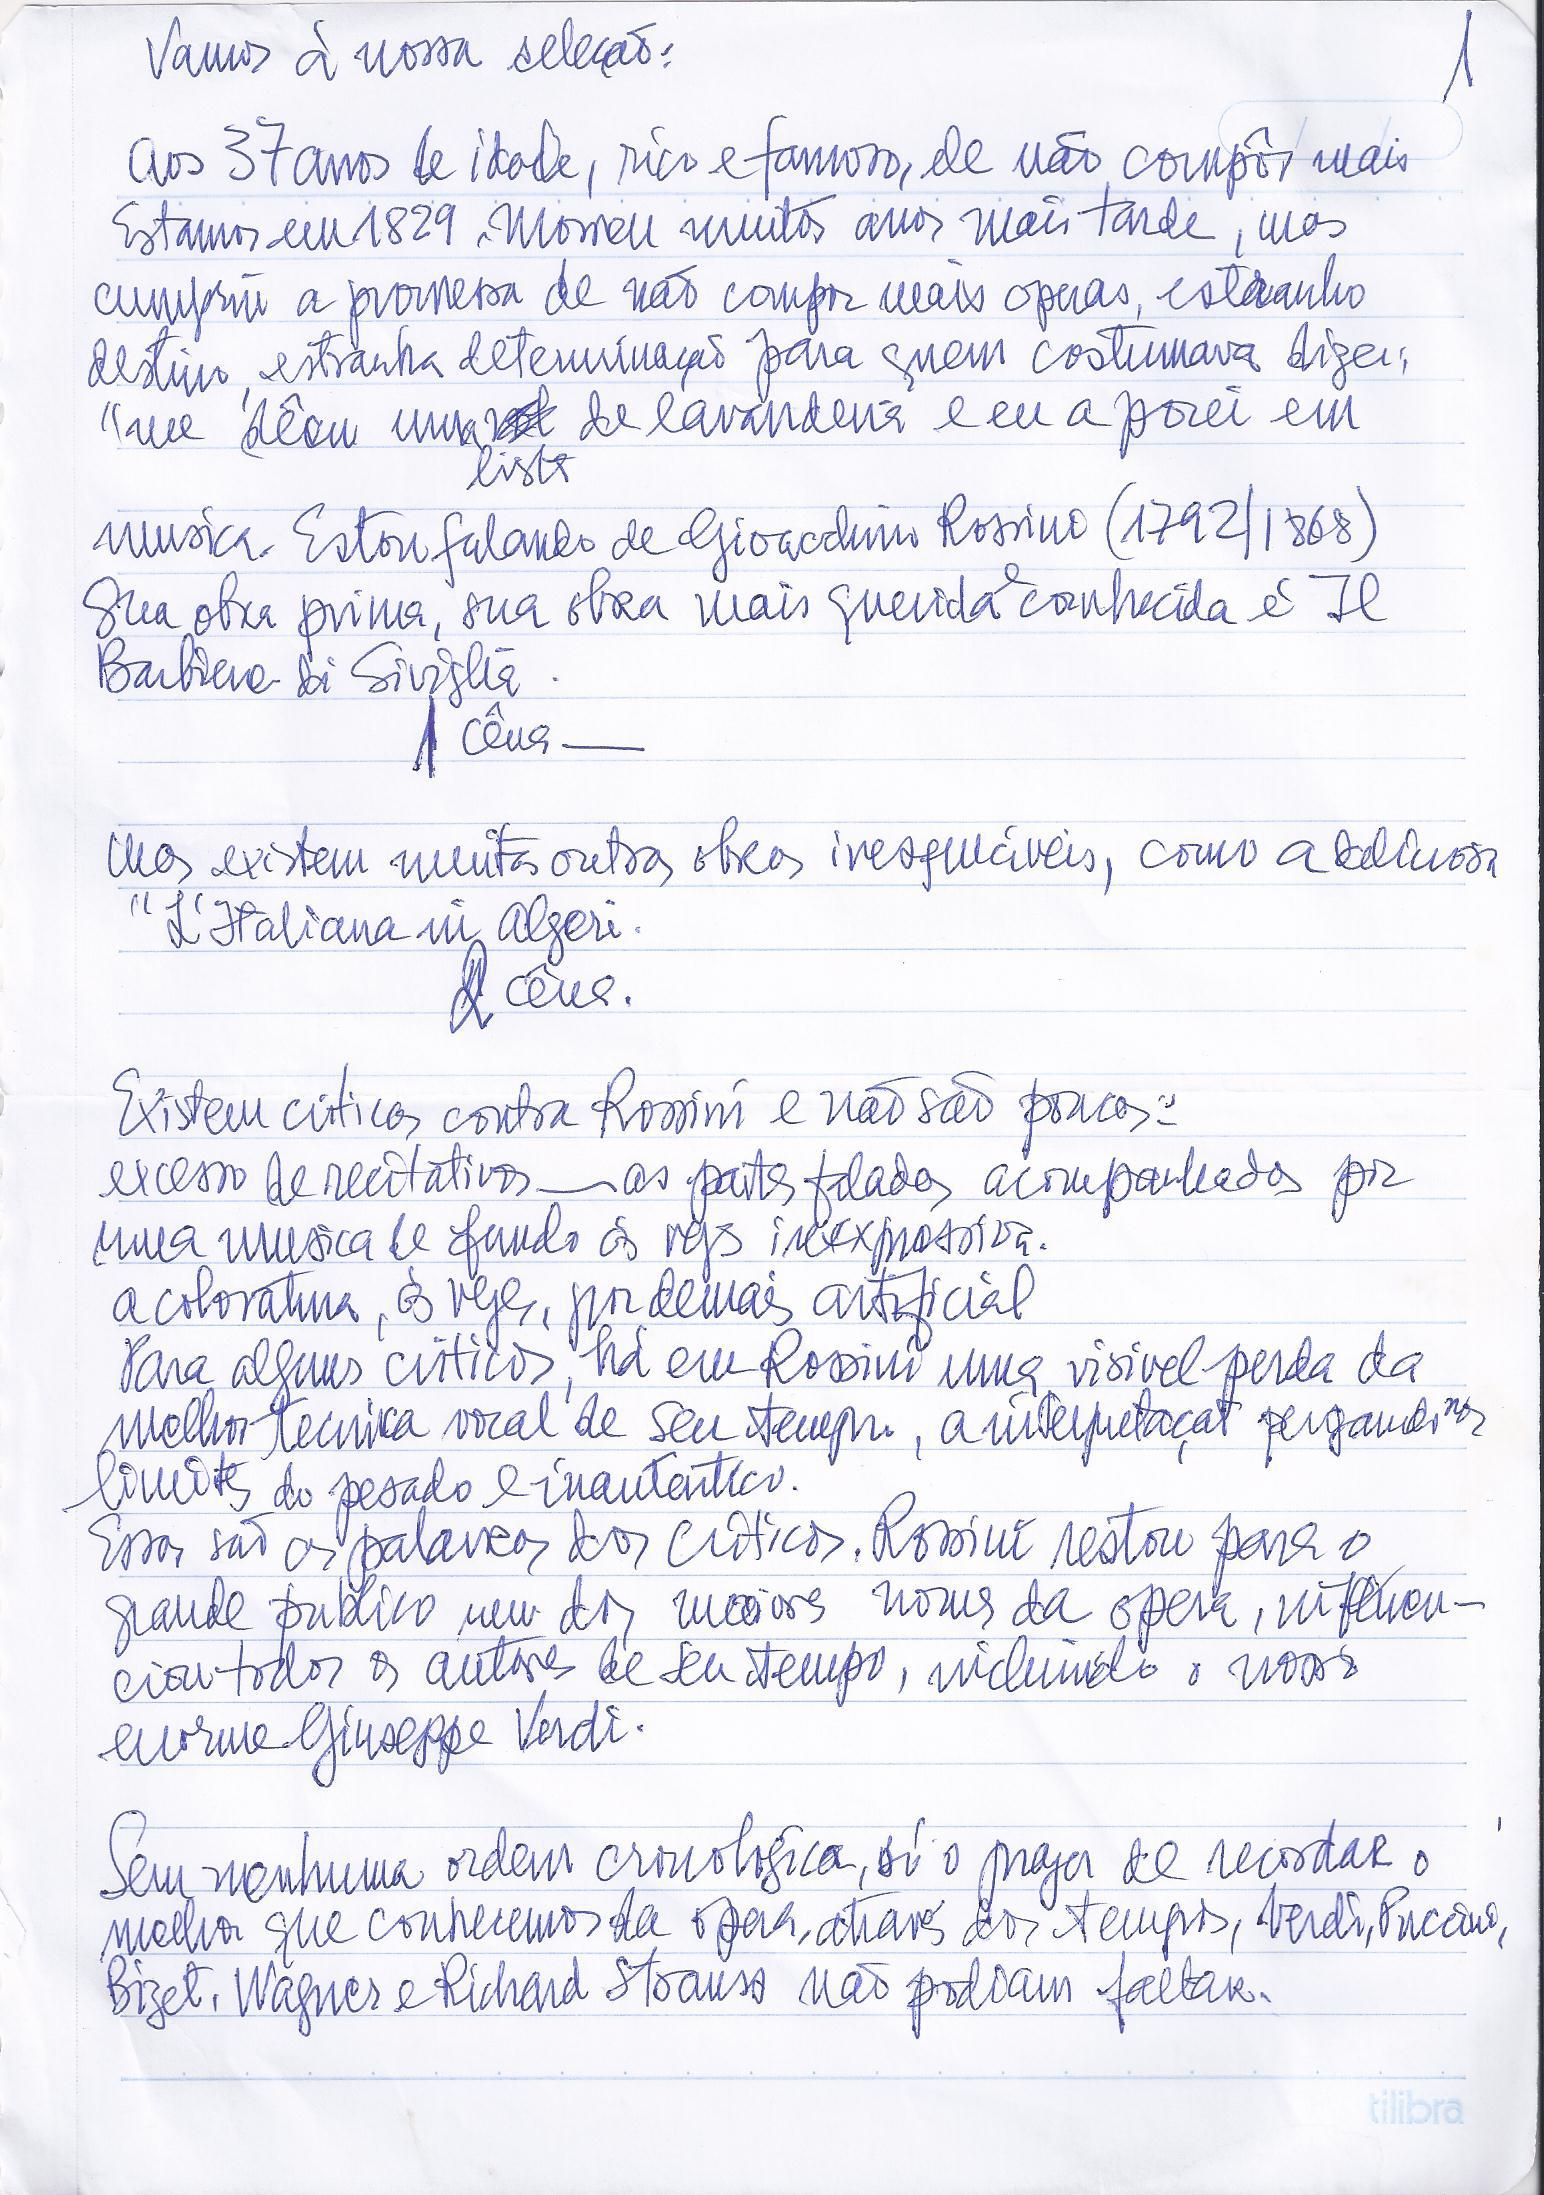 Vamos à nossa seleção:
1
Aos 37 anos de idade, rico e famoso, de não compôr mais
Estamos em 1829. Morreu muitos anos mais tarde, mas
cumpriu a promessa de não compor mais operas, estranho
destino, estranha determinação para quem costumava dizer:
"me dêem uma de lavanderia e eu a porei em
lista
musica. Estou falando de Gioacchino Rossino (1792/1868)
Sua obra prima, sua obra mais querida e conhecida é Il
Barbiere di Siviglia.
1 cêna —
Mas existem muitas outras obras inesquecíveis, como a deliciosa
"L'Italiana in Algeri.
2 cêna.
Existem criticas contra Rossini e não são poucas:
excesso de recitativos — as partes faladas acompanhadas por
uma musica de fundo ás vezes inexpressiva.
a coloratura, ás vezes, por demais artificial
Para alguns criticos, há em Rossini uma visivel perda da
melhor tecnica vocal de seu tempo, a interpretaçaõ nos
limites do pesado e inautentico.
Essas são as palavras dos criticos. Rossini restou para o
grande publico um dos maiores nomes da opera, influen-
ciou todos os autores de seu tempo, incluindo o nosso
enorme Giuseppe Verdi.
Sem nenhuma ordem cronologica, só o prazer de recordar o
melhor que conhecemos da opera, atravès dos tempos, Verdi, Puccini,
Bizet, Wagner e Richard Strauss não podiam faltar.
tilibra